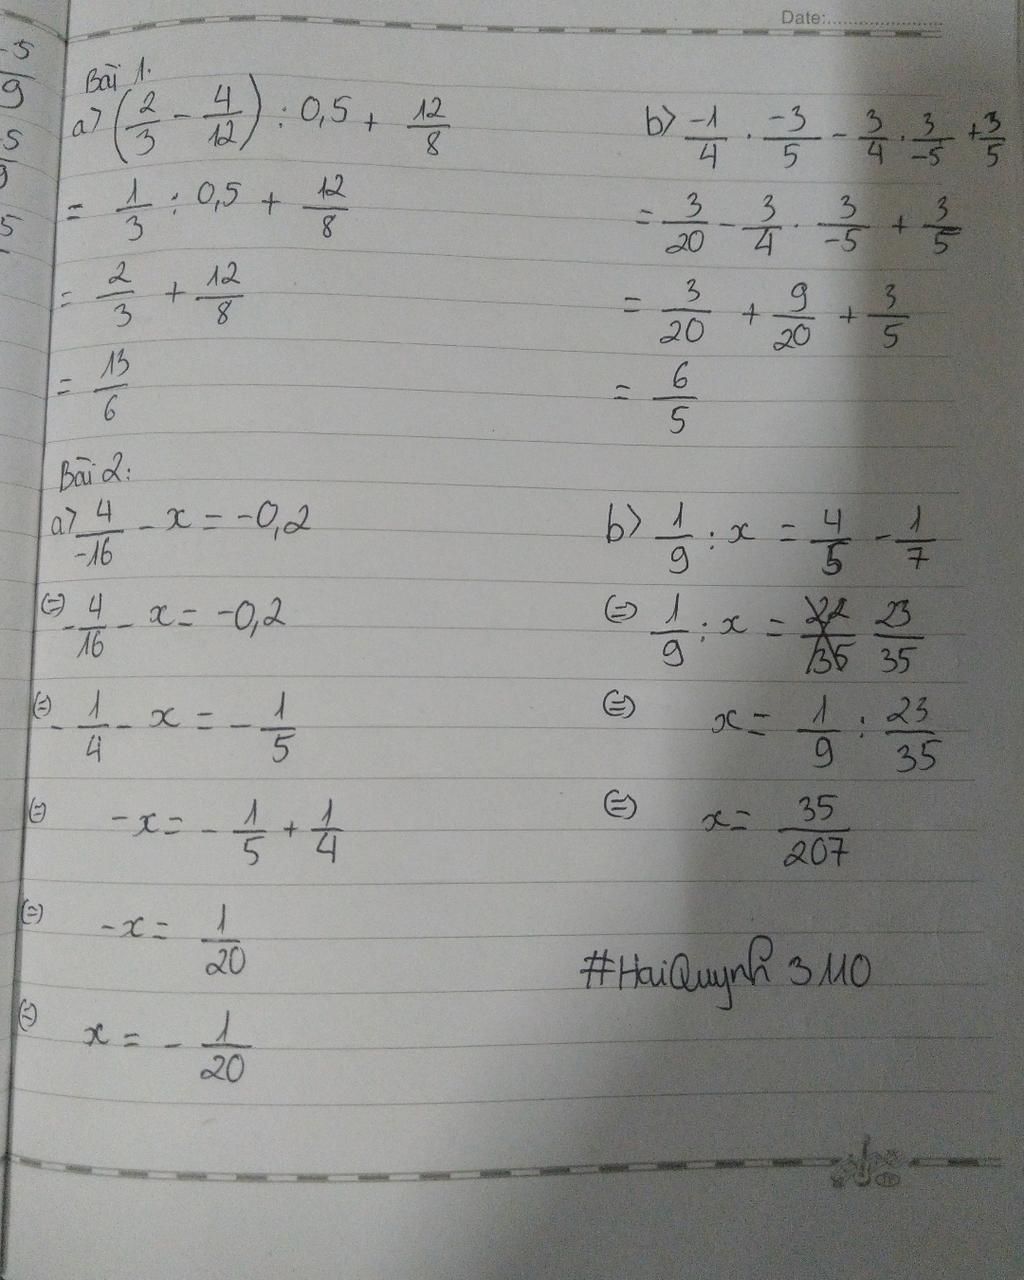 Date:
Bài 1.
a> (2/3 - 4/12) : 0,5 + 12/8
= 1/3 : 0,5 + 12/8
= 2/3 + 12/8
= 13/6
b> -1/4 . -3/5 - 3/4 . 3/-5 + 3/5
= 3/20 - 3/4 . 3/-5 + 3/5
= 3/20 + 9/20 + 3/5
= 6/5
Bài 2:
a> 4/-16 - x = -0,2
(=) -4/16 - x = -0,2
(=) -1/4 - x = -1/5
(=) -x = -1/5 + 1/4
(=) -x = 1/20
(=) x = -1/20
b> 1/9 : x = 4/5 - 1/7
(=) 1/9 : x = 23/35
(=) x = 1/9 : 23/35
(=) x = 35/207
#HaiQuynh 3110
-5/9
-5
9
5